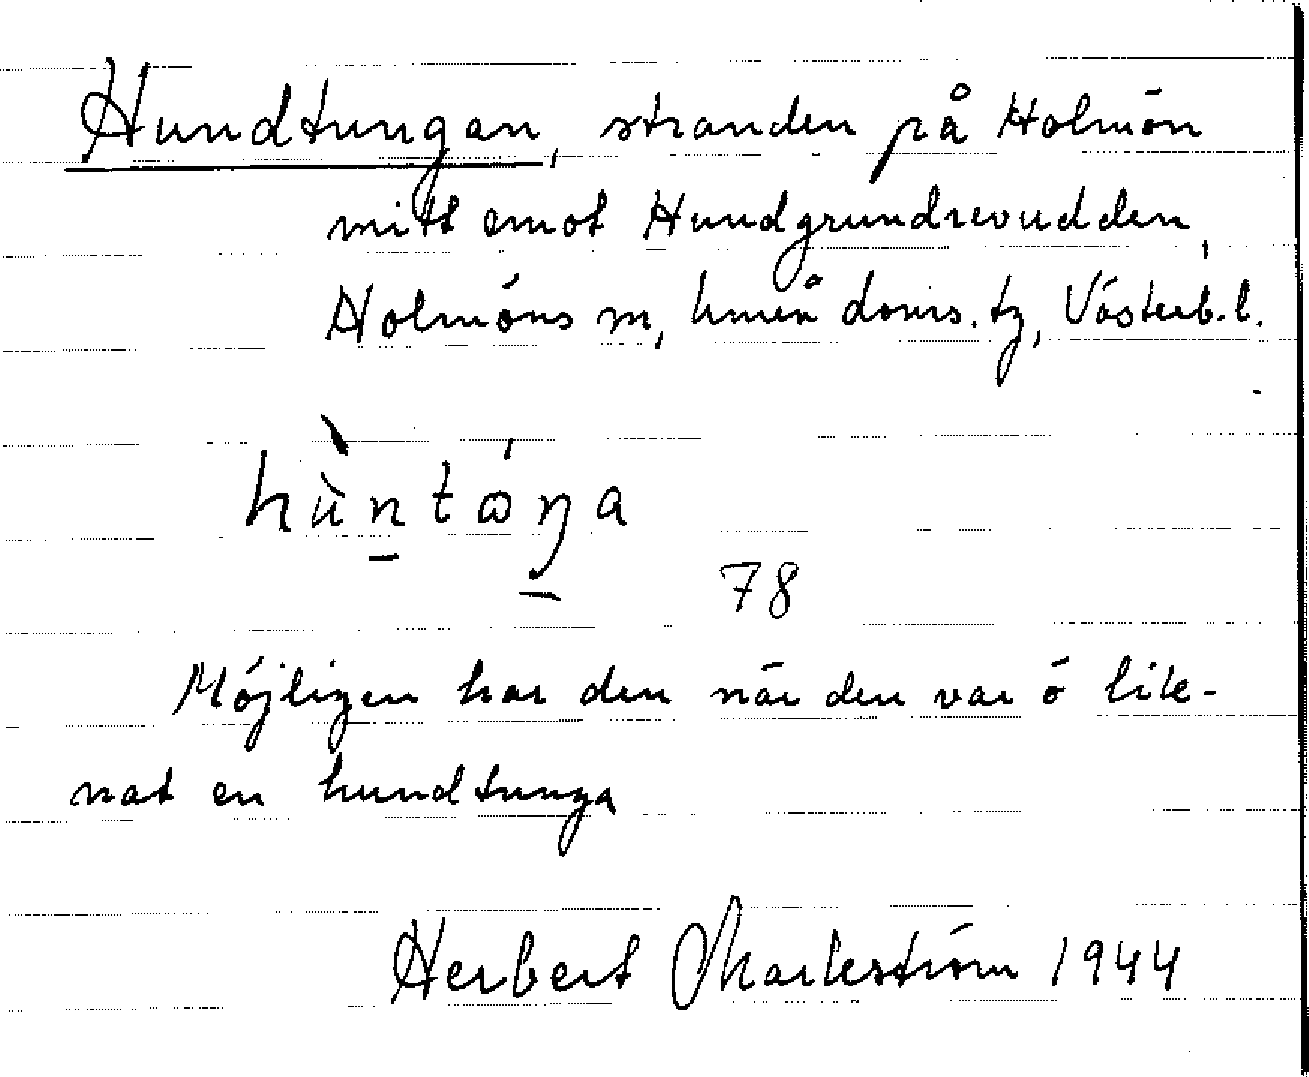 Hundtungan, stranden på Holmön
mitt emot Hundgrundrevudden,
Holmöns sn, Umeå doms. tg, Västerb. l.
hùn̠tɷ́ŋ̠a
78
Möjligen har den när den var ö lik-
nat en hundtunga
Herbert Markström 1944